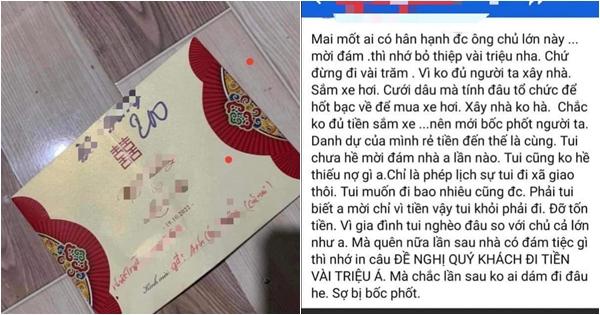 200
囍
19.10.2022
Kính mời
gđ: Anh
Mai mốt ai có hân hạnh đc ông chủ lớn này ...
mời đám .thì nhớ bỏ thiệp vài triệu nha. Chứ
đừng đi vài trăm . Vì ko đủ người ta xây nhà.
Sắm xe hơi. Cưới dâu mà tính đâu tổ chức để
hốt bạc về để mua xe hơi. Xây nhà ko hà. Chắc
ko đủ tiền sắm xe ...nên mới bốc phốt người ta.
Danh dự của mình rẻ tiền đến thế là cùng. Tui
chưa hề mời đám nhà a lần nào. Tui cũng ko hề
thiếu nợ gì a.Chỉ là phép lịch sự tui đi xã giao
thôi. Tui muốn đi bao nhiêu cũng đc. Phải tui
biết a mời chỉ vì tiền vậy tui khỏi phải đi. Đỡ tốn
tiền. Vì gia đình tui nghèo đâu so với chủ cả lớn
như a. Mà quên nữa lần sau nhà có đám tiệc gì
thì nhớ in câu ĐỀ NGHỊ QUÝ KHÁCH ĐI TIỀN
VÀI TRIỆU Á. Mà chắc lần sau ko ai dám đi đâu
he. Sợ bị bốc phốt.